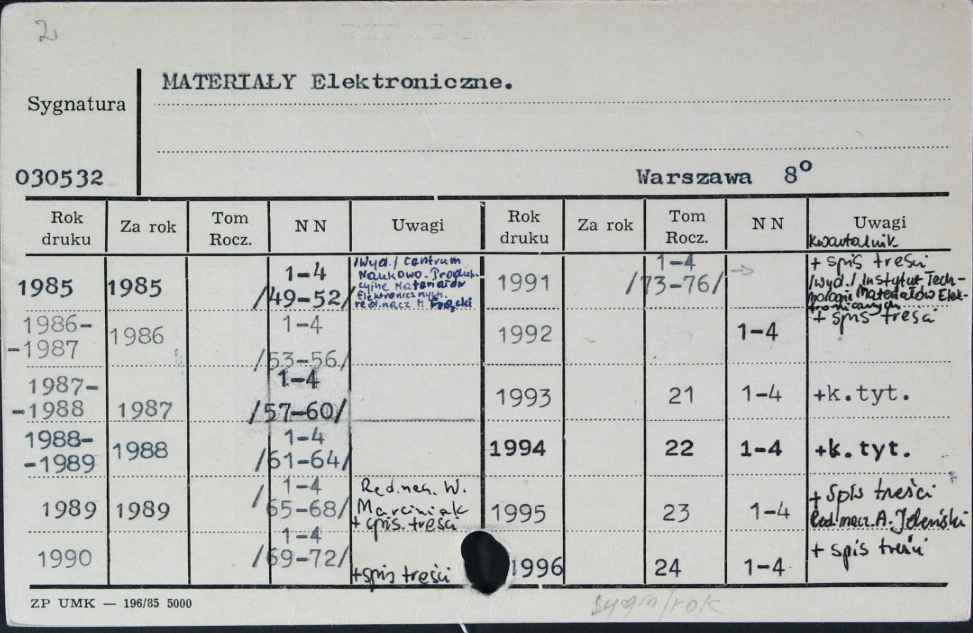 2
MATERIAŁY Elektroniczne.
Sygnatura
030532
Warszawa 8°
Rok druku Za rok Tom Rocz. N N Uwagi Rok druku Za rok Tom Rocz. N N Uwagi
Kwartalnik
1985 1985 1-4 /49-52/ /Wyd./ Centrum Naukowo-Produkcyjne Materiałów Elektronicznych. red. nacz.
1986--1987 1986 1-4 /53-56/
1987--1988 1987 1-4 /57-60/
1988--1989 1988 1-4 /61-64/
1989 1989 1-4 /65-68/ Red. nacz. W. Marciniak + spis. treści
1990 1-4 /69-72/ +spis treści
1991 1-4 /73-76/ → + spis treści /Wyd./ Instytut Technologii Materiałów Elektronicznych
1992 1-4 + spis treści
1993 21 1-4 +k.tyt.
1994 22 1-4 +k.tyt.
1995 23 1-4 + spis treści Red. nacz. A. Jeleński
1996 24 1-4 + spis treści
ZP UMK — 196/85 5000
sygn/rok